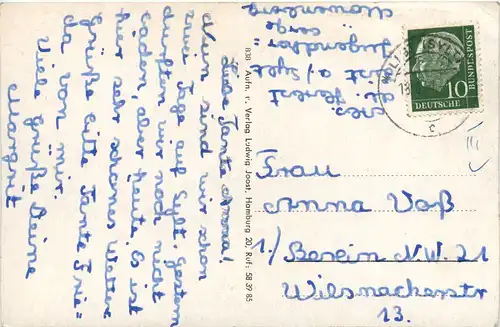 Liebe Tante Anna!
Nun sind wir schon
zwei Tage auf Sylt. Gestern
durften wir noch nicht
baden, aber heute. Es ist
hier sehr schönes Wetter.
Grüße bitte Tante Frie=
da von mir.
Viele Grüße Deine
Margrit
z. Zt. Sylt
Jugendher
berge
838 Aufn. u. Verlag Ludwig Joost, Hamburg 20, Ruf: 58 39 85
DEUTSCHE
BUNDESPOST
10
(SYLT)
c
III
Frau
Anna Voß
1./ Berlin N.W. 21
Wilsnackerstr
13.